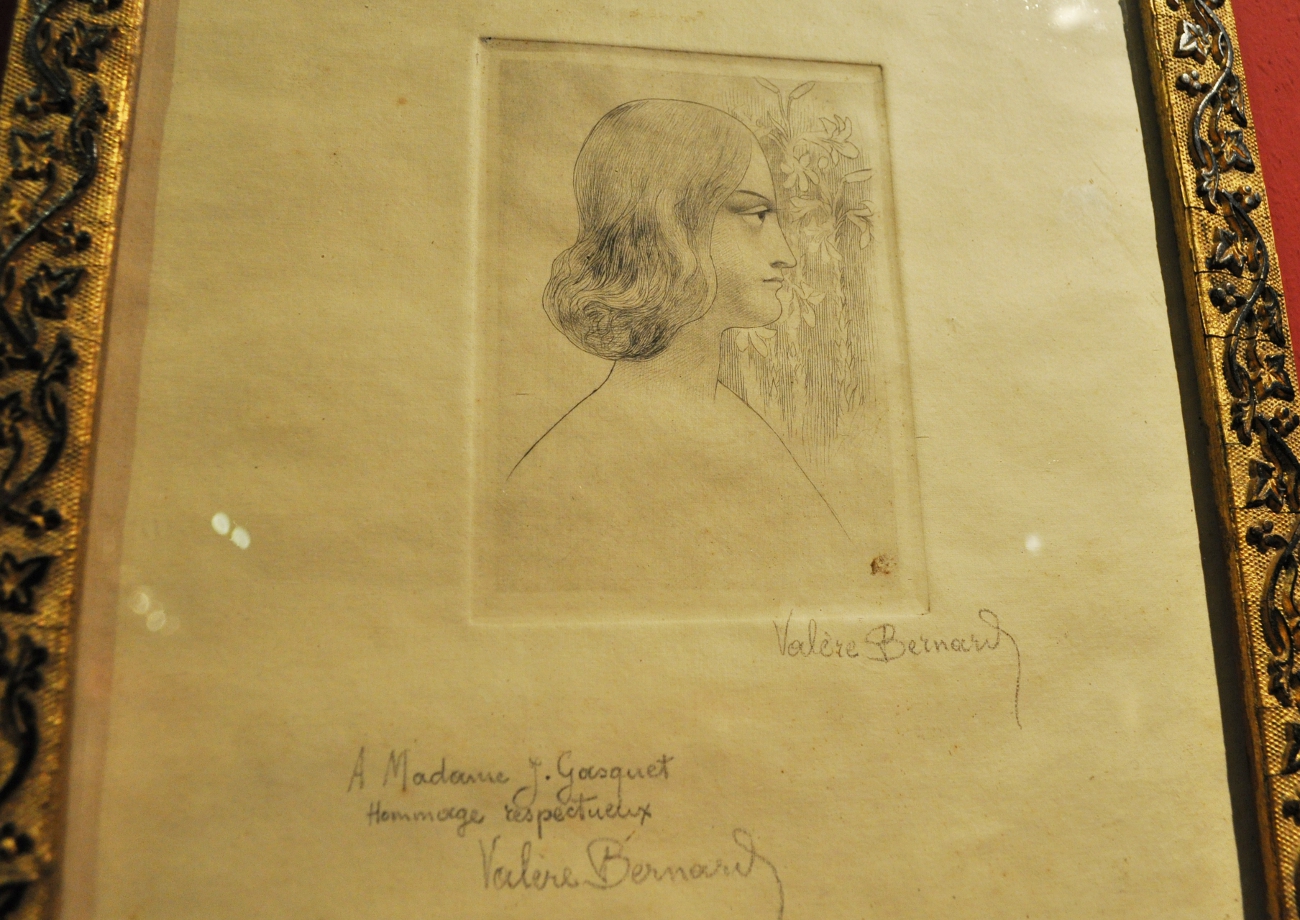 Valère Bernard
A Madame J. Gasquet
Hommage respectueux
Valère Bernard